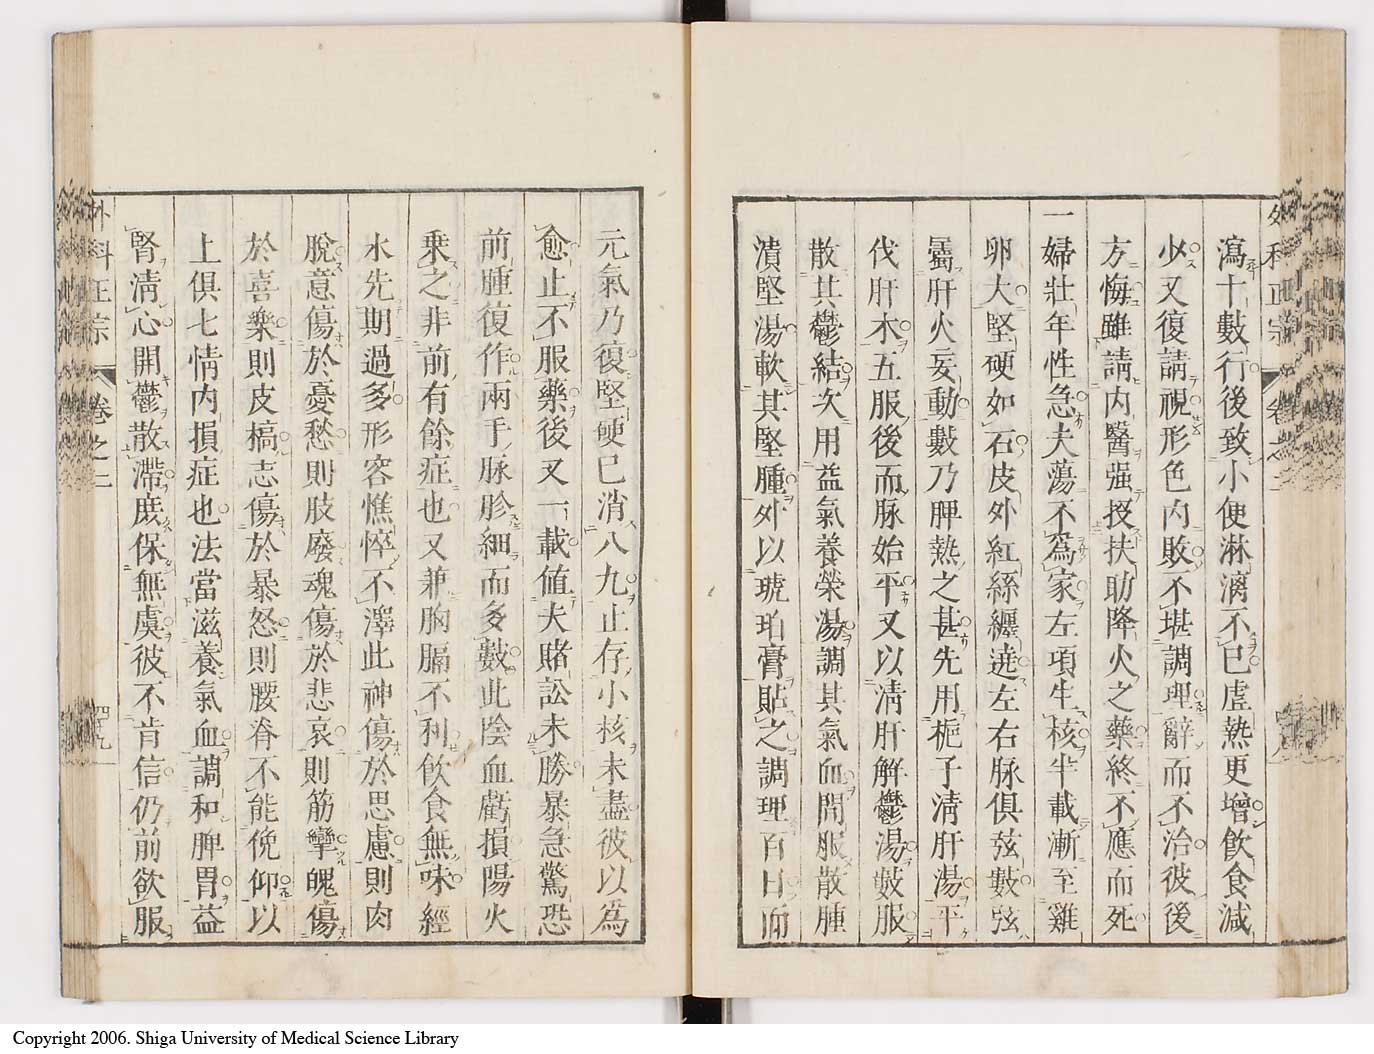 瀉十數行後致小便淋漓不已虛熱更增飲食減
少又復請視形色内敗不堪調理辭而不治彼後
方悔雖請内醫强授扶助降火之藥終不應而死
一婦壯年性急夫蕩不爲家左項生核半載漸至雞
卵大堅硬如石皮外紅絲纏遶左右脉俱弦數弦
屬肝火妄動數乃脾熱之甚先用梔子清肝湯平
伐肝木五服後而脉始平又以清肝解鬱湯數服
散其鬱結次用益氣養榮湯調其氣血間服散腫
潰堅湯軟其堅腫外以琥珀膏貼之調理百日而
元氣乃復堅硬已消八九止存小核未盡彼以為
愈止不服藥後又一載値夫賭訟未勝暴急驚恐
前腫復作兩手脉胗細而多數此陰血虧損陽火
乗之非前有餘症也又兼胸膈不利飲食無味經
水先期過多形容憔悴不澤此神傷於思慮則肉
脫意傷於憂愁則肢廢魂傷於悲哀則筋攣魄傷
於喜樂則皮槁志傷於暴怒則腰脊不能俛仰以
上俱七情内損症也法當滋養氣血調和脾胃益
腎清心開鬱散滯庶保無虞彼不肯信仍前欲服
外科正宗 卷之二 四十九
Copyright 2006. Shiga University of Medical Science Library